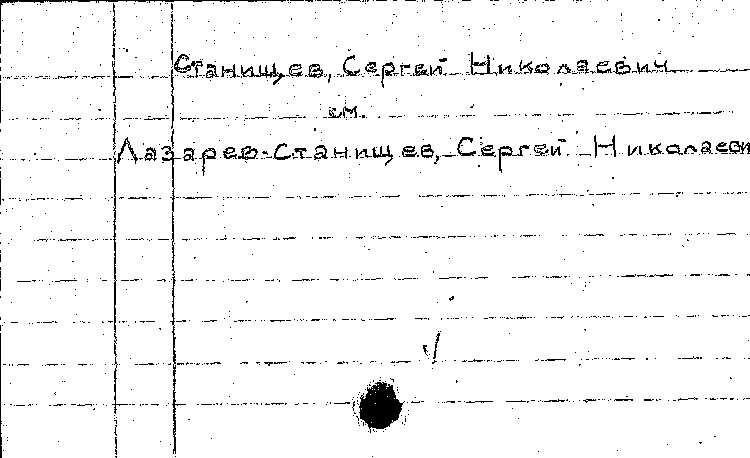 Станищев, Сергей Николаевич
см.
Лазарев-Станищев, Сергей Николаеви